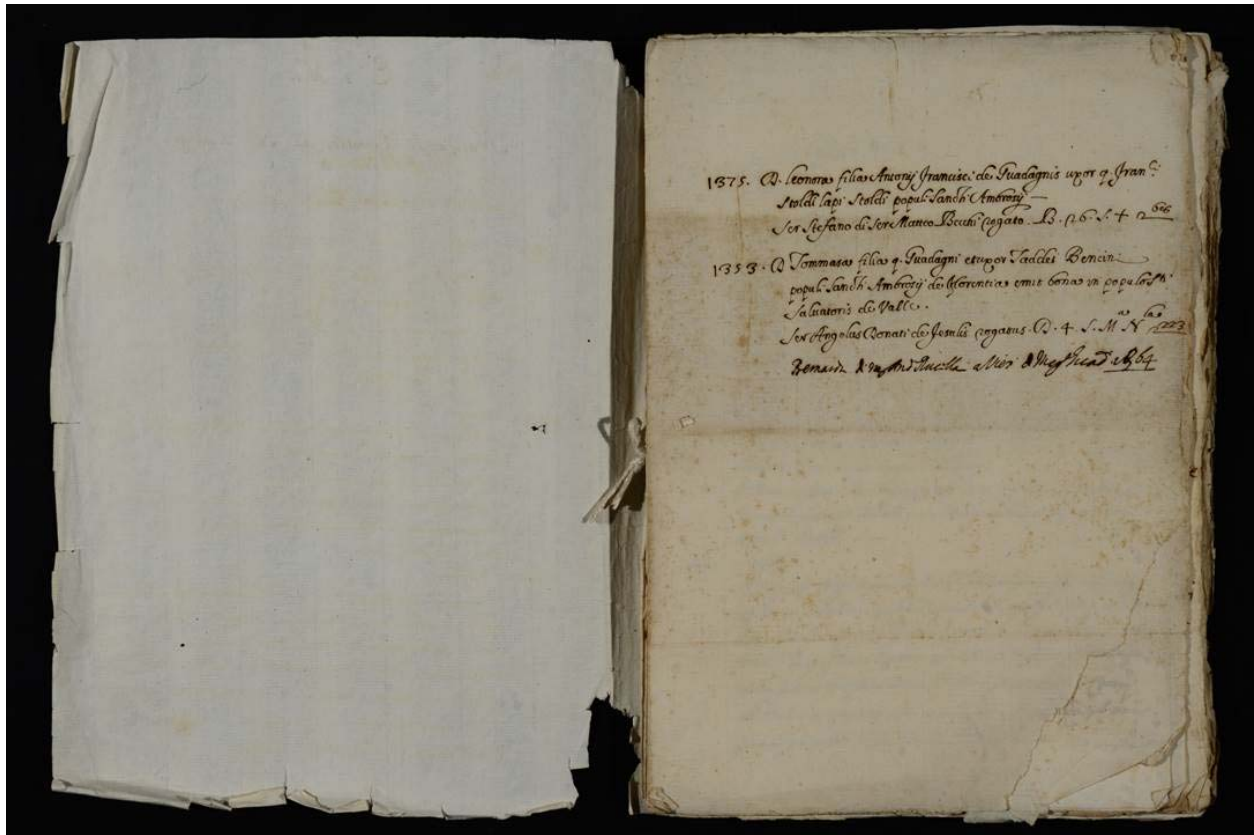 1375. D. Leonora filia Antonij Francisci de Guadagnis uxor q. Fran.ci
Stoldi Lapi Stoldi populi Sancti Ambrosij —
Ser Stefano di Ser Matteo Becchi rogato. B. 26. S. +
1353. D. Tommasa filia q. Guadagni et uxor Taddei Bencini
populi Sancti Ambrosij de Florentia emit bona in populo S.ti
Salvatoris de Valle.
Ser Angelus Donati de Fesulis rogatus. B. 4. S. M.a N. 223